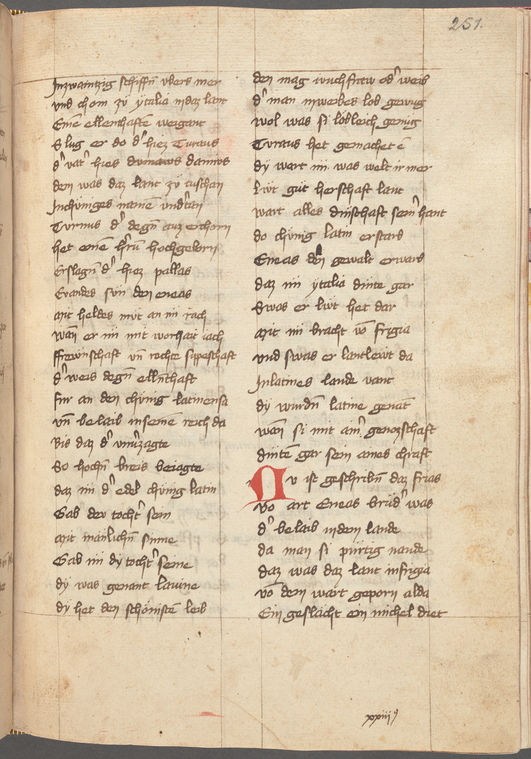 251.
Inzwaintzig schiffn̄ vbers mer
vnd chom zů ytalia in daz lant
Eine ellenthafte weigant
Slug er do d' hiez Turnus
d' vat' hies damnus
den was daz lant zů tuschan
In chuniges namē vnd'tan
Turnus d' degn̄ auz erchorn
het eine hochgeborn
Erslagn̄ d' hiez pallas
Euandes svn den eneas
mit heldes mvt an im rach
wan er im mit iach
frewnschaft vn̄ rechte sipeschaft
d' weis degn̄ ellnthaft
fur an den chunig latinensa
vn̄ belaib in seinē reich da
Bis daz d' vnu'zagte
So hochn̄ breis beiagte
daz im d' edel chunig latin
Gab der tocht' sein
mit manlichn̄ sinne
Gab im dy tocht' seine
dy was genant lauine
dy het den schönistē leib
den mag iunchfraw od' weib
d' man inwerbes lob gewug
wol was si lobleich genug
Turnus het gemachet ē
dy wart im was welt ir mer
Liwt gut herschaft lant
wart alles dinschaft sein' hant
do chunig latin erstarb
Eneas den gewalt erwarb
daz im ytalia dinte gar
Swas er liwt het dar
mit im bracht vō frigia
vnd swas er lantlewt da
In latines lande vant
dy wurdn̄ latine genāt
wan si mit aim' genozschaft
dintē gar sein aines chraft
Nv ist geschribn̄ daz frias
vō art Eneas brud' was
d' belaib in dem lande
da man si nande
daz was daz lant in frigia
vō den wart geporn alda
Ein geslacht ein michel diet
xxiij